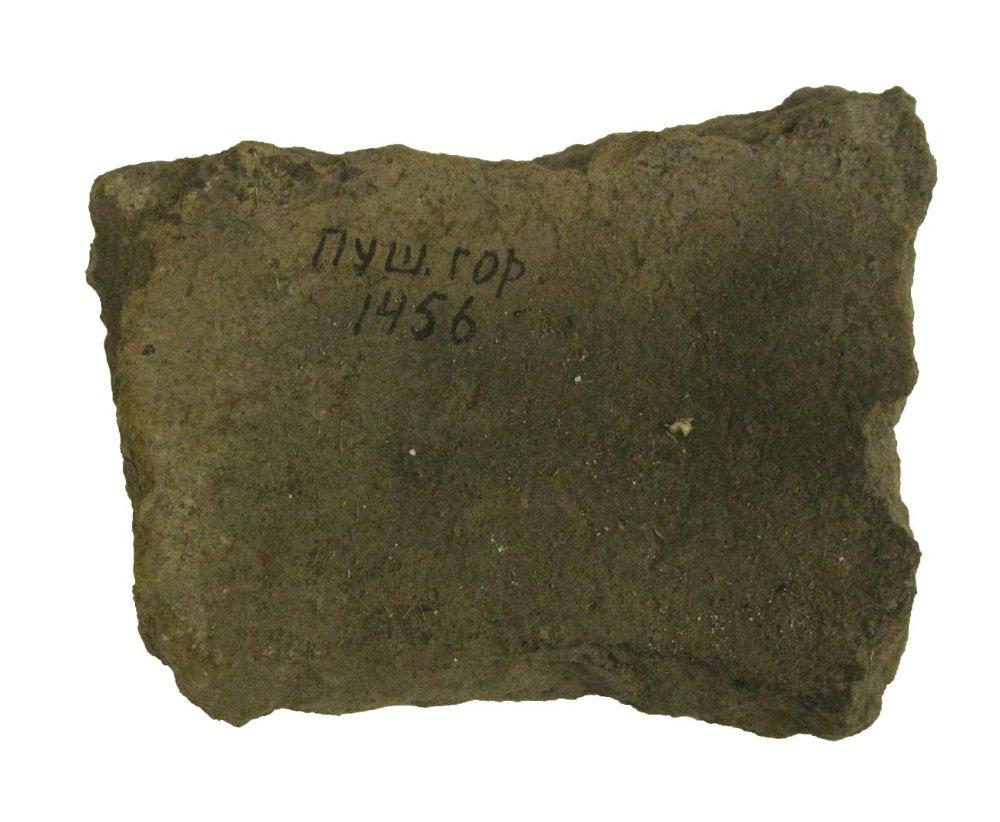 ПУШ. ГОР.
1456